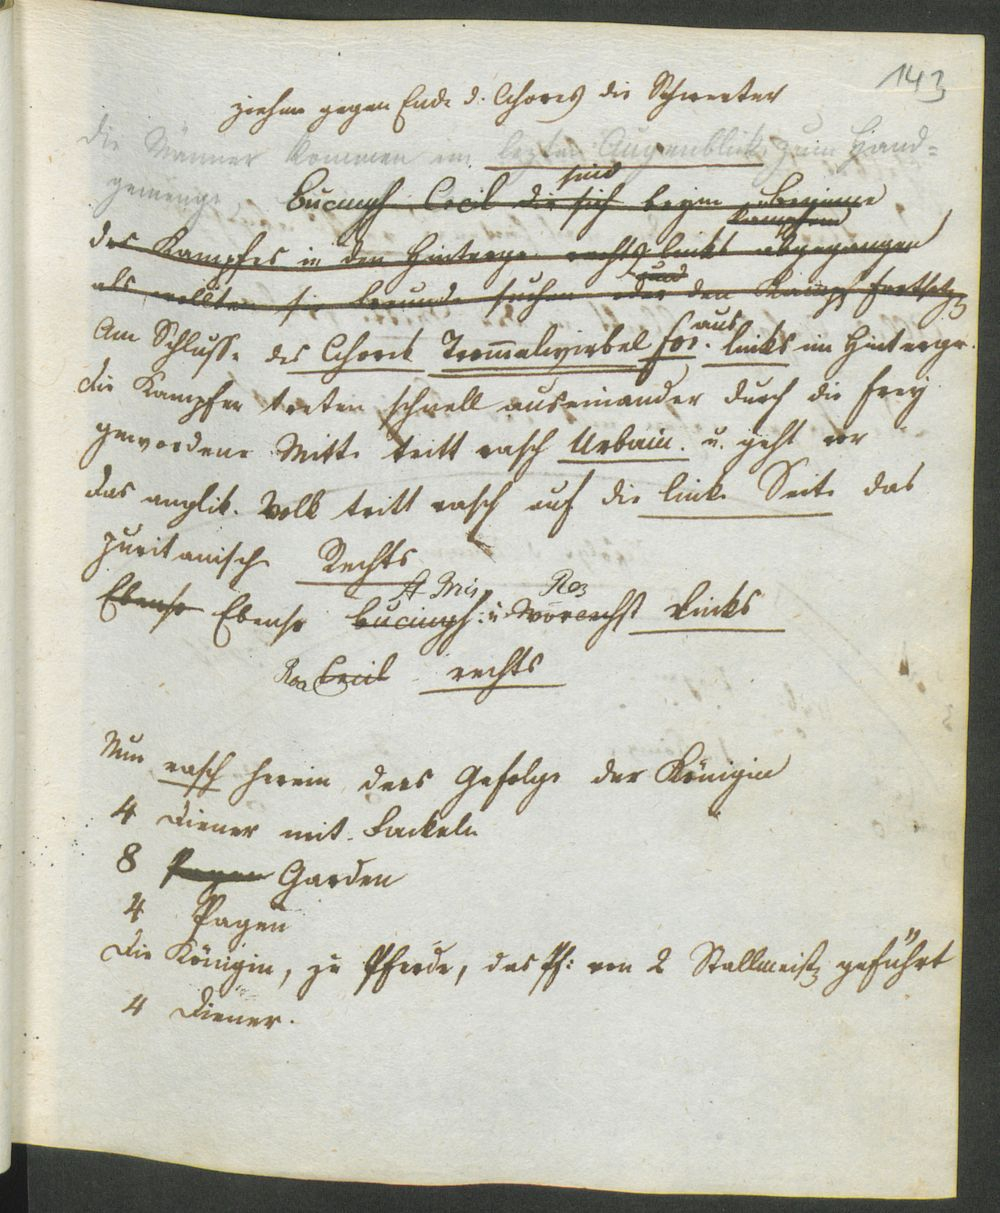 143
ziehen gegen Ende d. Chores die Schwerter
die Männer kommen im letzten Augenblick zum Hand=
gemenge
sind
Bucingh Cecil die sich beym Beginne
kämpfend
des Kampfes in den Hintergr. rechts links abgegangen
und
als wollten sie Freunde suchen oder den Kampf fortsetz
aus
Am Schlusse des Chors Trommelwirbel for. links im Hintergr.
die Kämpfer treten schnell auseinander durch die frey
gewordene Mitte tritt rasch Urbain. u. geht vor
das anglik. Volk tritt rasch auf die linke Seite das
puritanische Rechts
Ebenso Ebenso Bucingh: u Links
Cecil rechts
Nun rasch herein das Gefolge der Königin
4 Diener mit Fackeln
8 Pagen Garden
4 Pagen
Die Königin, zu Pferde, das Pf: von 2 Stallmeist geführt
4 Diener.